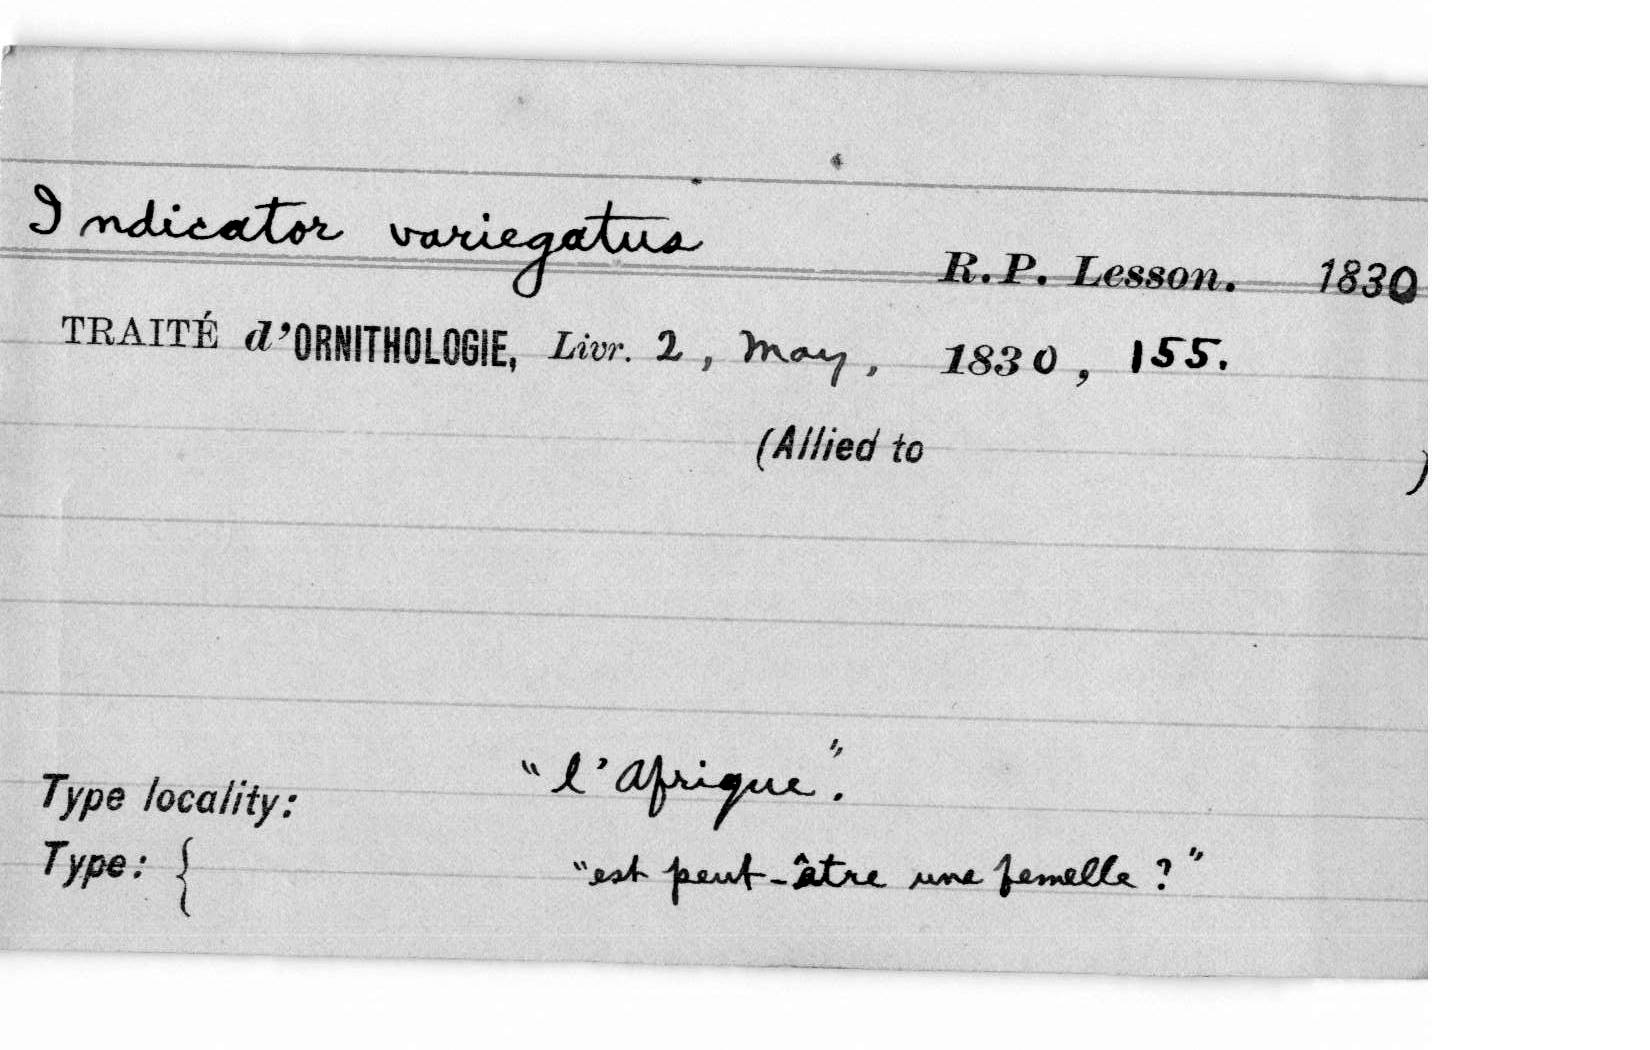 Indicator variegatus R.P. Lesson. 1830
TRAITÉ d'ORNITHOLOGIE, Livr. 2, May, 1830, 155.
(Allied to )
"l'Afrique".
Type locality:
Type: { "est peut-être une femelle?"